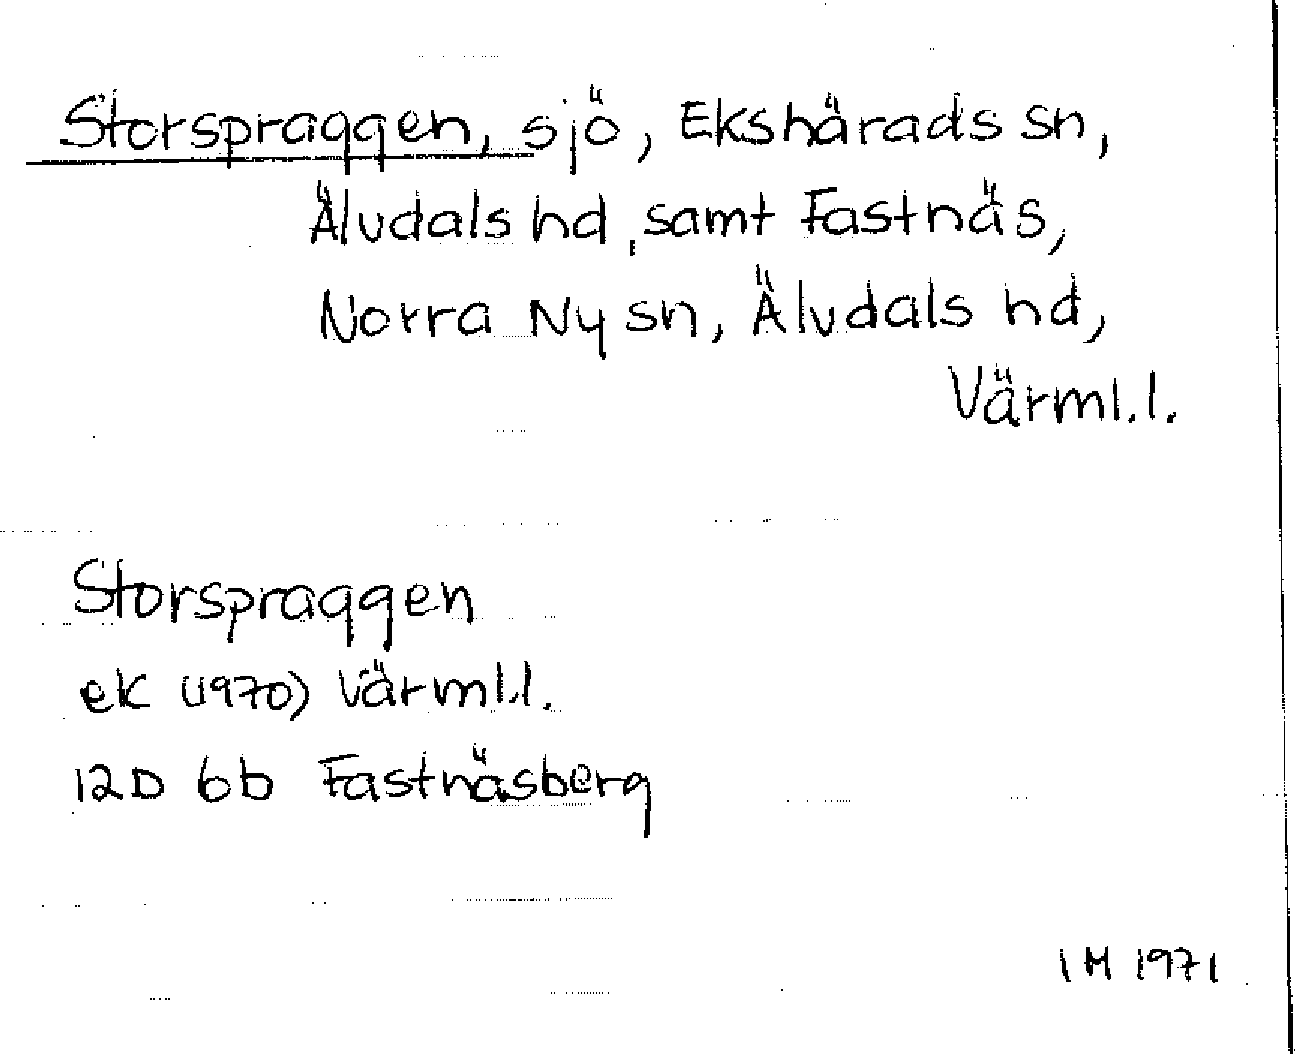 Storspraggen, sjö, Ekshärads sn,
Älvdals hd, samt Fastnäs,
Norra Ny sn, Älvdals hd,
Värml.l.
Storspraggen
ek (1970) Värml.l.
12D 6b Fastnäsberg
IM 1971